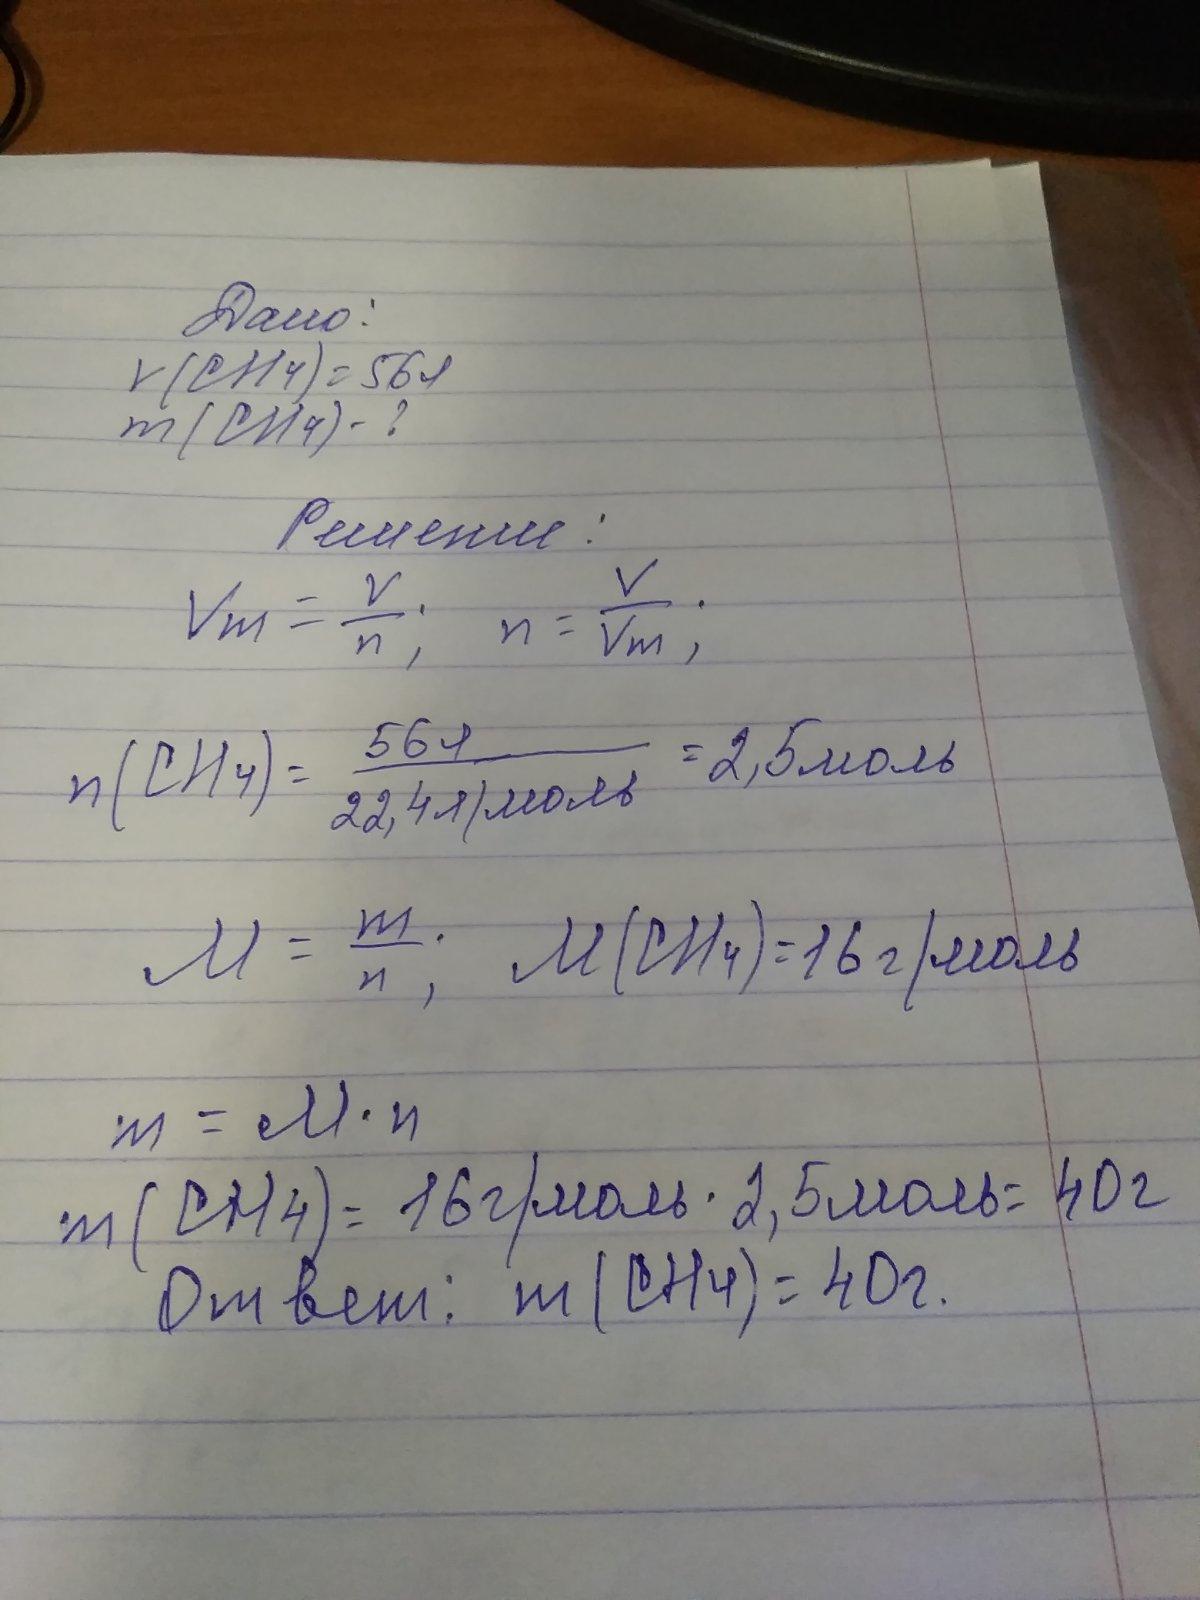 Дано:
V(CH4)=56л
m(CH4)-?
Решение:
Vm = V/n; n = V/Vm;
n(CH4)= 56л/22,4л/моль =2,5моль
M = m/n; M(CH4)=16г/моль
m = M·n
m(CH4)= 16г/моль·2,5моль= 40г
Ответ: m(CH4)=40г.